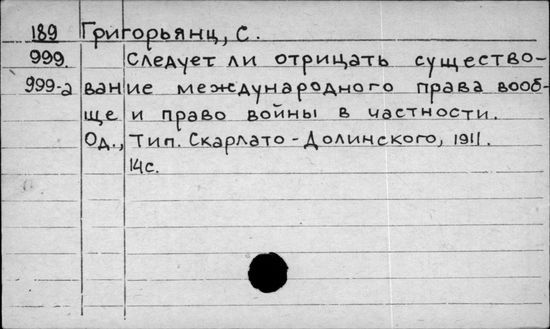 189 Григорьянц, С.
999. Следует ли отрицать существо-
999-а вание международного права вооб-
ще и право войны в частности.
Од., Тип. Скарлато-Долинского, 1911.
14с.